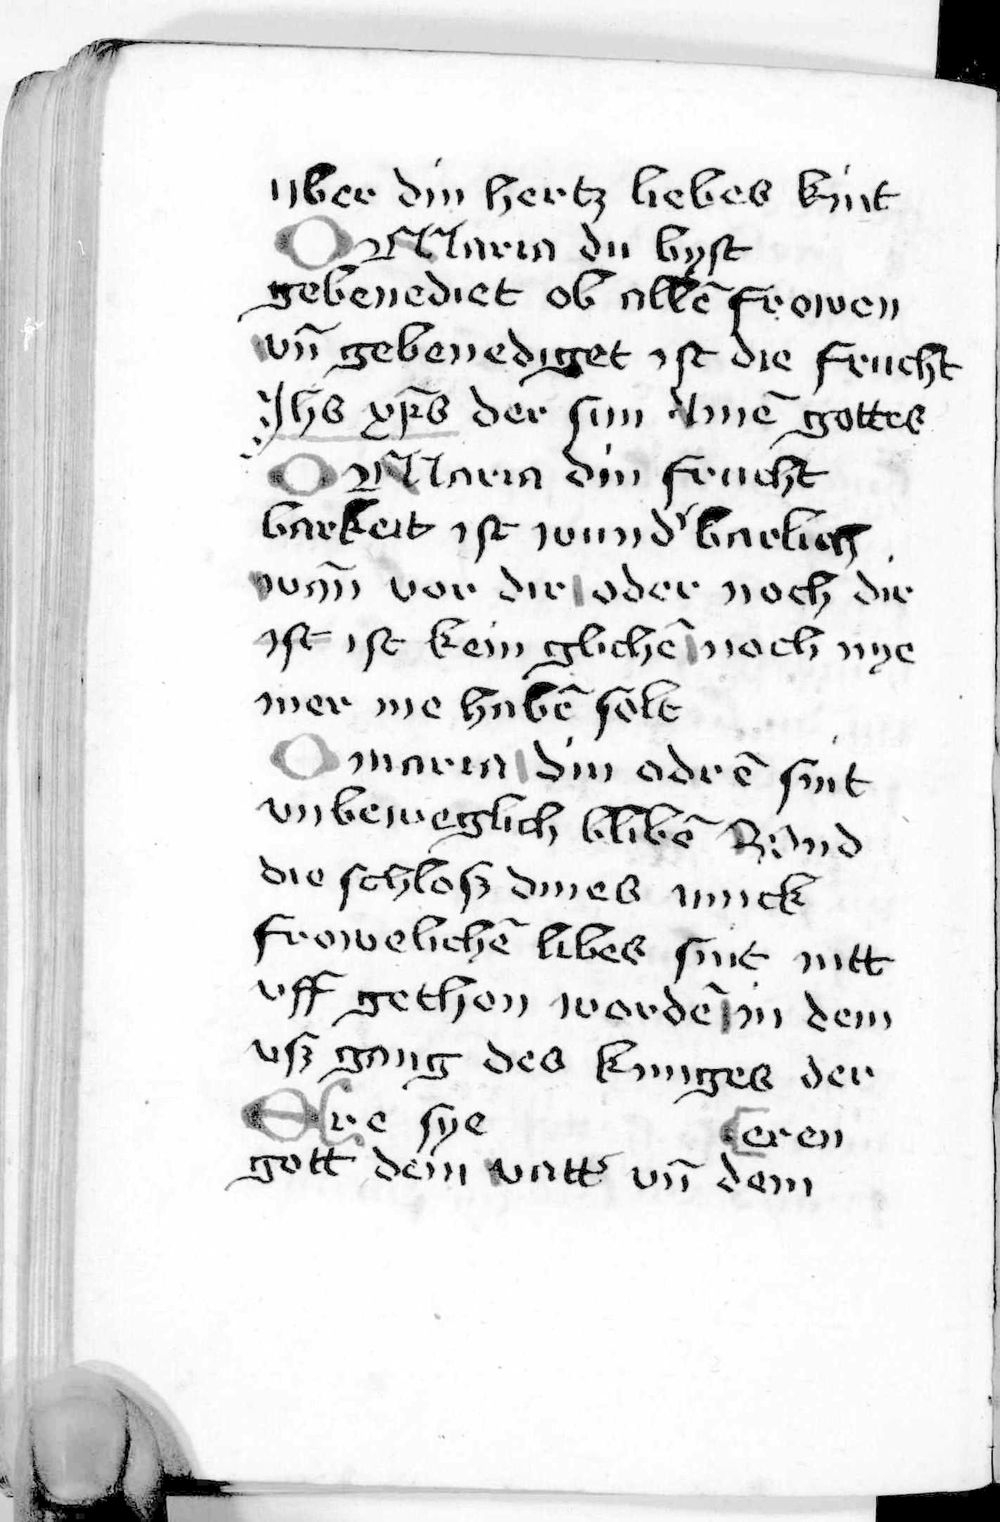 vber din hertz liebes kint
O Maria du byst
gebenediet ob allē frowen
vn̄ gebenediget ist die frucht
Jhs xp̄s der sun gottes
O Maria din frucht
barkeit ist wund'barlich
wan̄ vor dir oder noch dir
ist ist kein glichē noch nye
mer me habē solt
O maria din adrē sint
vnbeweglich blibē vnd
die schlosz dines
frowelichē libes sint nitt
vff gethon wordē in dem
vsz gang des kunges der
Ere sye eren
gott dem vatt' vn̄ dem